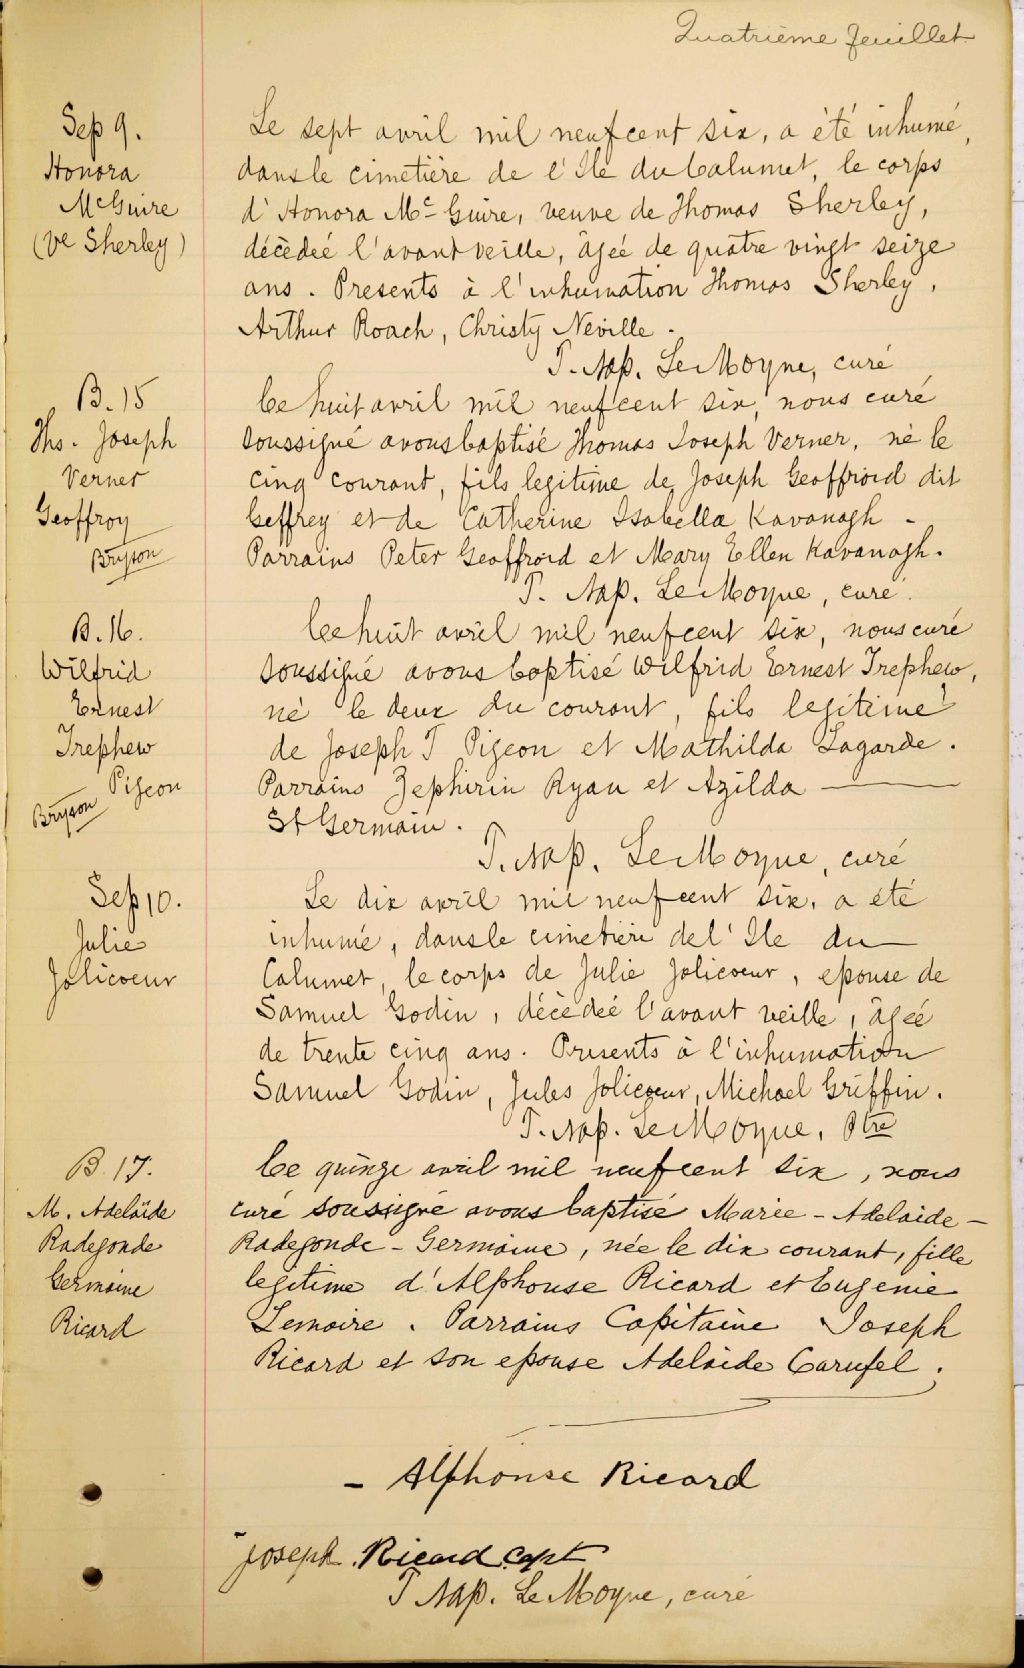 Quatrième feuillet
Sep 9.
Honora
McGuire
(Ve Sherley)
Le sept avril mil neufcent six, a été inhumé,
dans le cimetière de l'Ile du Calumet, le corps
d'Honora Mc Guire, veuve de Thomas Sherley,
décèdeé l'avant veille, âgeé de quatre vingt seize
ans. Presents à l'inhumation Thomas Sherley,
Arthur Roach, Christy Neville.
T. Nap. LeMoyne, curé
B. 15
Ths. Joseph
Verner
Geoffroy
Bryson
Le huit avril mil neufcent six, nous curé
soussigné avons baptisé Thomas Joseph Verner, né le
cinq courant, fils legitime de Joseph Geoffroid dit
Geffrey et de Catherine Isabella Kavanagh -
Parrains Peter Geoffroid et Mary Ellen Kavanagh.
T. Nap. LeMoyne, curé.
B. 16.
Wilfrid
Ernest
Trephew
Pigeon
Bryson
Le huit avril mil neufcent six, nous curé
soussigné avons baptisé Wilfrid Ernest Trephew,
né le deux du courant, fils legitime
de Joseph T Pigeon et Mathilda Lagarde.
Parrains Zephirin Ryan et Azilda —
St Germain.
T. Nap. LeMoyne, curé
Sep 10.
Julie
Jolicoeur
Le dix avril mil neufcent six, a été
inhumé, dans le cimetière de l'Ile du
Calumet, le corps de Julie Jolicoeur, epouse de
Samuel Godin, décèdeé l'avant veille, âgeé
de trente cinq ans. Presents à l'inhumation
Samuel Godin, Jules Jolicoeur, Michael Griffin.
T. Nap. LeMoyne, Ptre
B. 17.
M. Adelaïde
Radegonde
Germaine
Ricard
Le quinze avril mil neufcent six, nous
curé soussigné avons baptisé Marie - Adelaide -
Radegonde - Germaine, née le dix courant, fille
legitime d'Alphonse Ricard et Eugenie
Lemaire. Parrains Capitaine Joseph
Ricard et son epouse Adelaide Carufel.
- Alphonse Ricard
Joseph Ricard Capt
T Nap. LeMoyne, curé